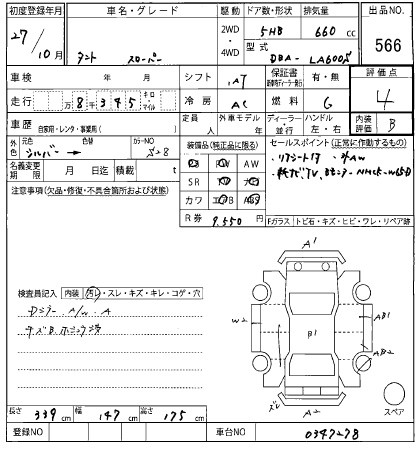 初度登録年月 車名・グレード 駆動 ドア数・形状 排気量 出品NO.
27/10月 タント スローパー 2WD・4WD 5HB 660cc 566
型式 DBA-LA600S
車検 年 月 シフト IAT 保証書 有・無 評価点 4
走行 万8千345 キロ・マイル 冷房 AC 燃料 G
車歴 自家用・レンタ・事業用( ) 定員 人 外車モデル 年 ディーラー・並行 ハンドル 左・右 内装評価 B
外色 元色 シルバー → 色替 カラーNO S28
装備品(純正品に限る) セールスポイント(正常に作動するもの)
名義変更期限 月 日迄 積載 t
PS PW AW
SR TV ナビ
カワ エアB ABS
・リアシート付 ・
注意事項(欠品・修復・不具合箇所および状態)
R券 9,550円
Fガラス トビ石・キズ・ヒビ・ワレ・リペア跡
検査員記入 内装 汚レ・スレ・キズ・キレ・コゲ・穴
A1
W2
B1
AB1
AB2
A2
スペア
長さ 339cm 幅 147cm 高さ 175cm
登録NO 車台NO 0347278